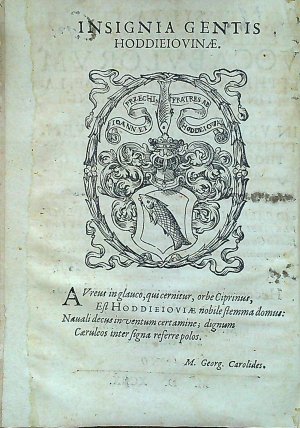 INSIGNIA GENTIS
HODDIEIOVINÆ.
FRATRES AB
IOANN. ET
HODDEIOVA
AVreus in glauco, qui cernitur, orbe Ciprinus,
Est HODDIEIOVIÆ nobile stemma domus:
Nauali decus inventum certamine; dignum
Cærulcos inter signa referre polos.
M. Georg. Carolides.